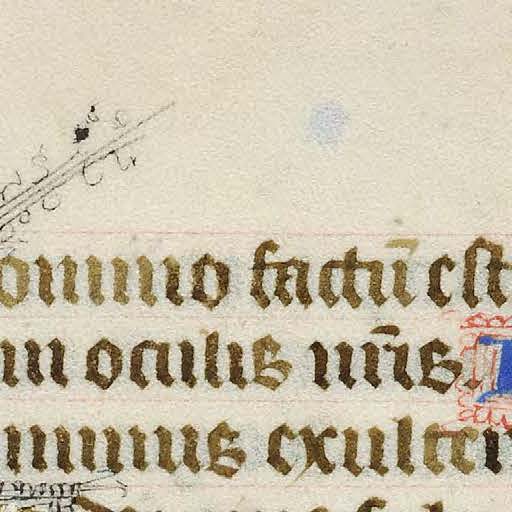 omino factū est
in oculis nr̄is.
minus exultem